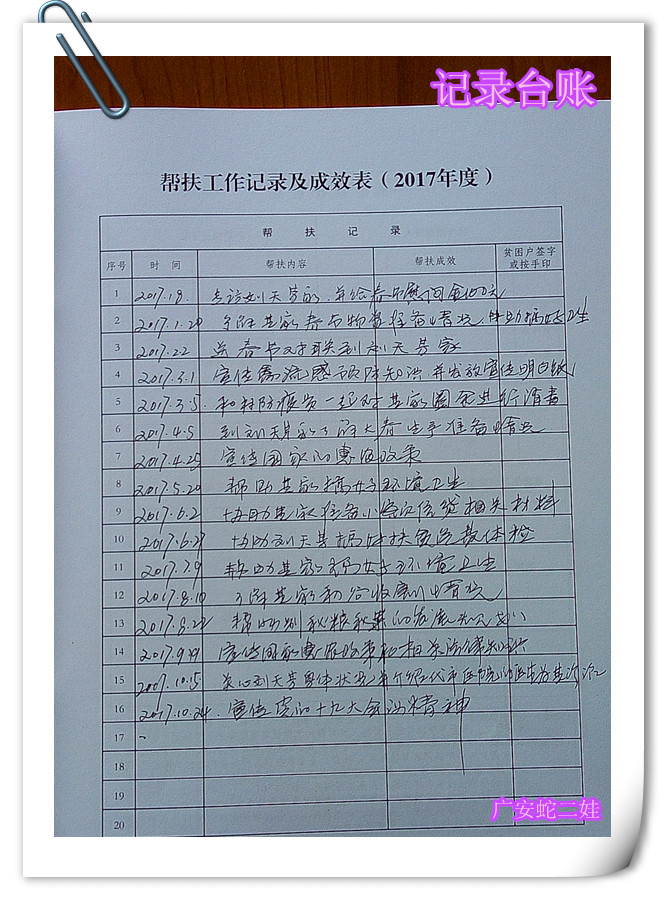 记录台账
帮扶工作记录及成效表（2017年度）
帮 扶 记 录
序号 时 间 帮扶内容 帮扶成效 贫困户签字或按手印
1 2017.1.9. 走访刘天芳家，并给春节慰问金100元
2 2017.1.20 了解其家春节物资准备情况，
3 2017.2.2 送春节对联到刘天芳家
4 2017.3.1 宣传禽流感预防知识并发放宣传明白纸
5 2017.3.5. 和村防疫员一起对其家圈舍进行消毒
6 2017.4.5 到刘天芳家了解大春生产准备情况
7 2017.4.25 宣传国家的惠农政策
8 2017.5.20 帮助其家搞好环境卫生
9 2017.6.2 协助其家准备小额信贷相关材料
10 2017.6.27 协助刘天芳搞好扶贫免费体检
11 2017.7.9 帮助其家搞好环境卫生
12 2017.8.10 了解其家水稻收割情况
13 2017.8.22 帮助
14 2017.9.19 宣传国家惠农政策和相关法律知识
15 2017.10.15 关心刘天芳身体状况并介绍
16 2017.10.24. 宣传党的十九大会议精神
17
18
19
20
广安蛇二娃